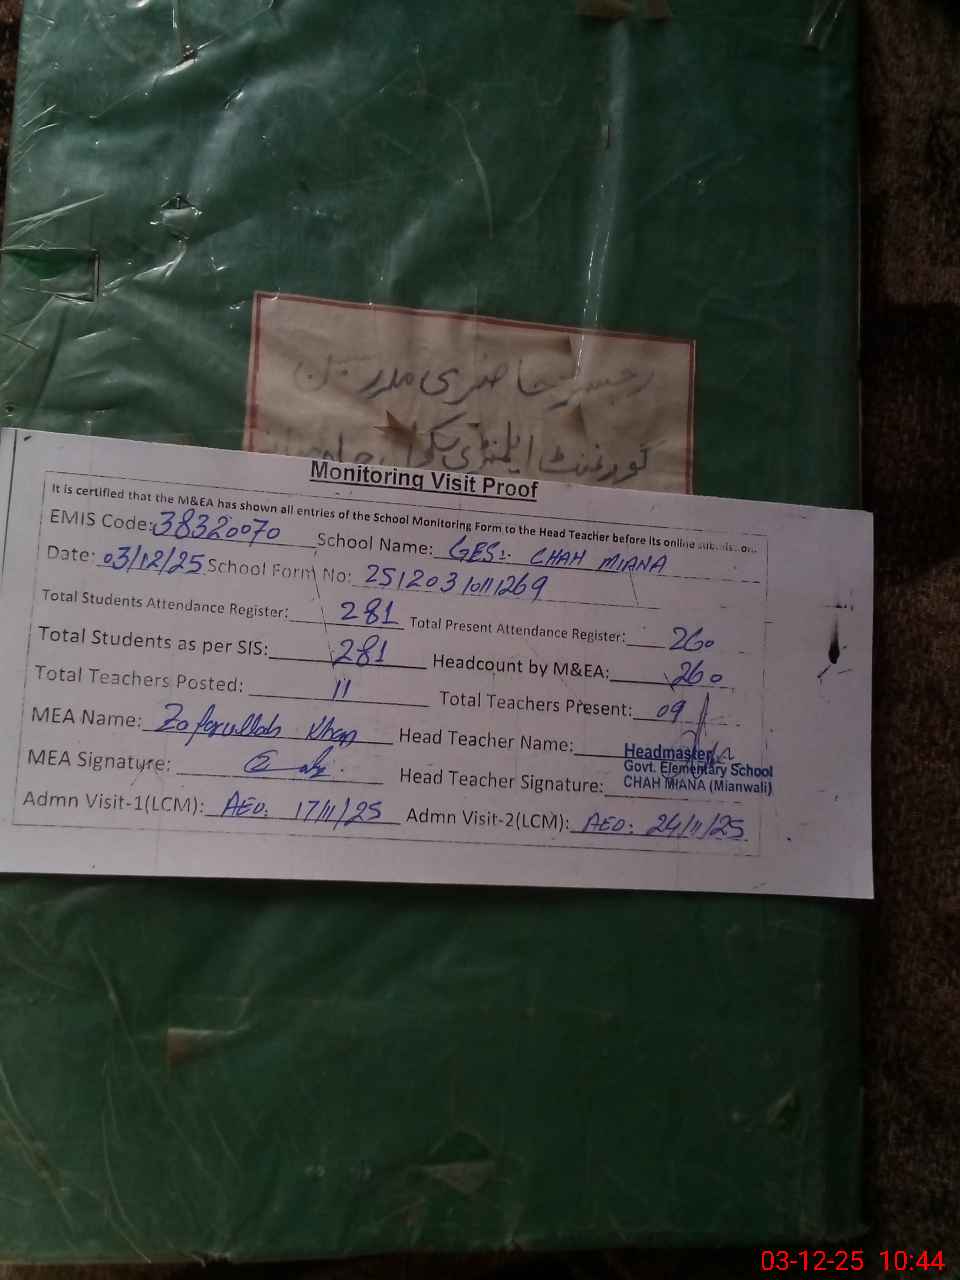 رجسٹر حاضری مدرسین
گورنمنٹ ایلیمنٹری سکول چاہ
Monitoring Visit Proof
It is certified that the M&EA has shown all entries of the School Monitoring Form to the Head Teacher before its online submission.
EMIS Code: 38320070 School Name: GES: CHAH MIANA
Date: 03/12/25 School Form No: 2512031011269
Total Students Attendance Register: 281 Total Present Attendance Register: 260
Total Students as per SIS: 281 Headcount by M&EA: 260
Total Teachers Posted: 11 Total Teachers Present: 09
MEA Name: Zafarullah Khan Head Teacher Name:
Headmaster
Govt. Elementary School
CHAH MIANA (Mianwali)
MEA Signature: Head Teacher Signature:
Admn Visit-1(LCM): AEO: 17/11/25 Admn Visit-2(LCM): AEO: 24/11/25
03-12-25 10:44